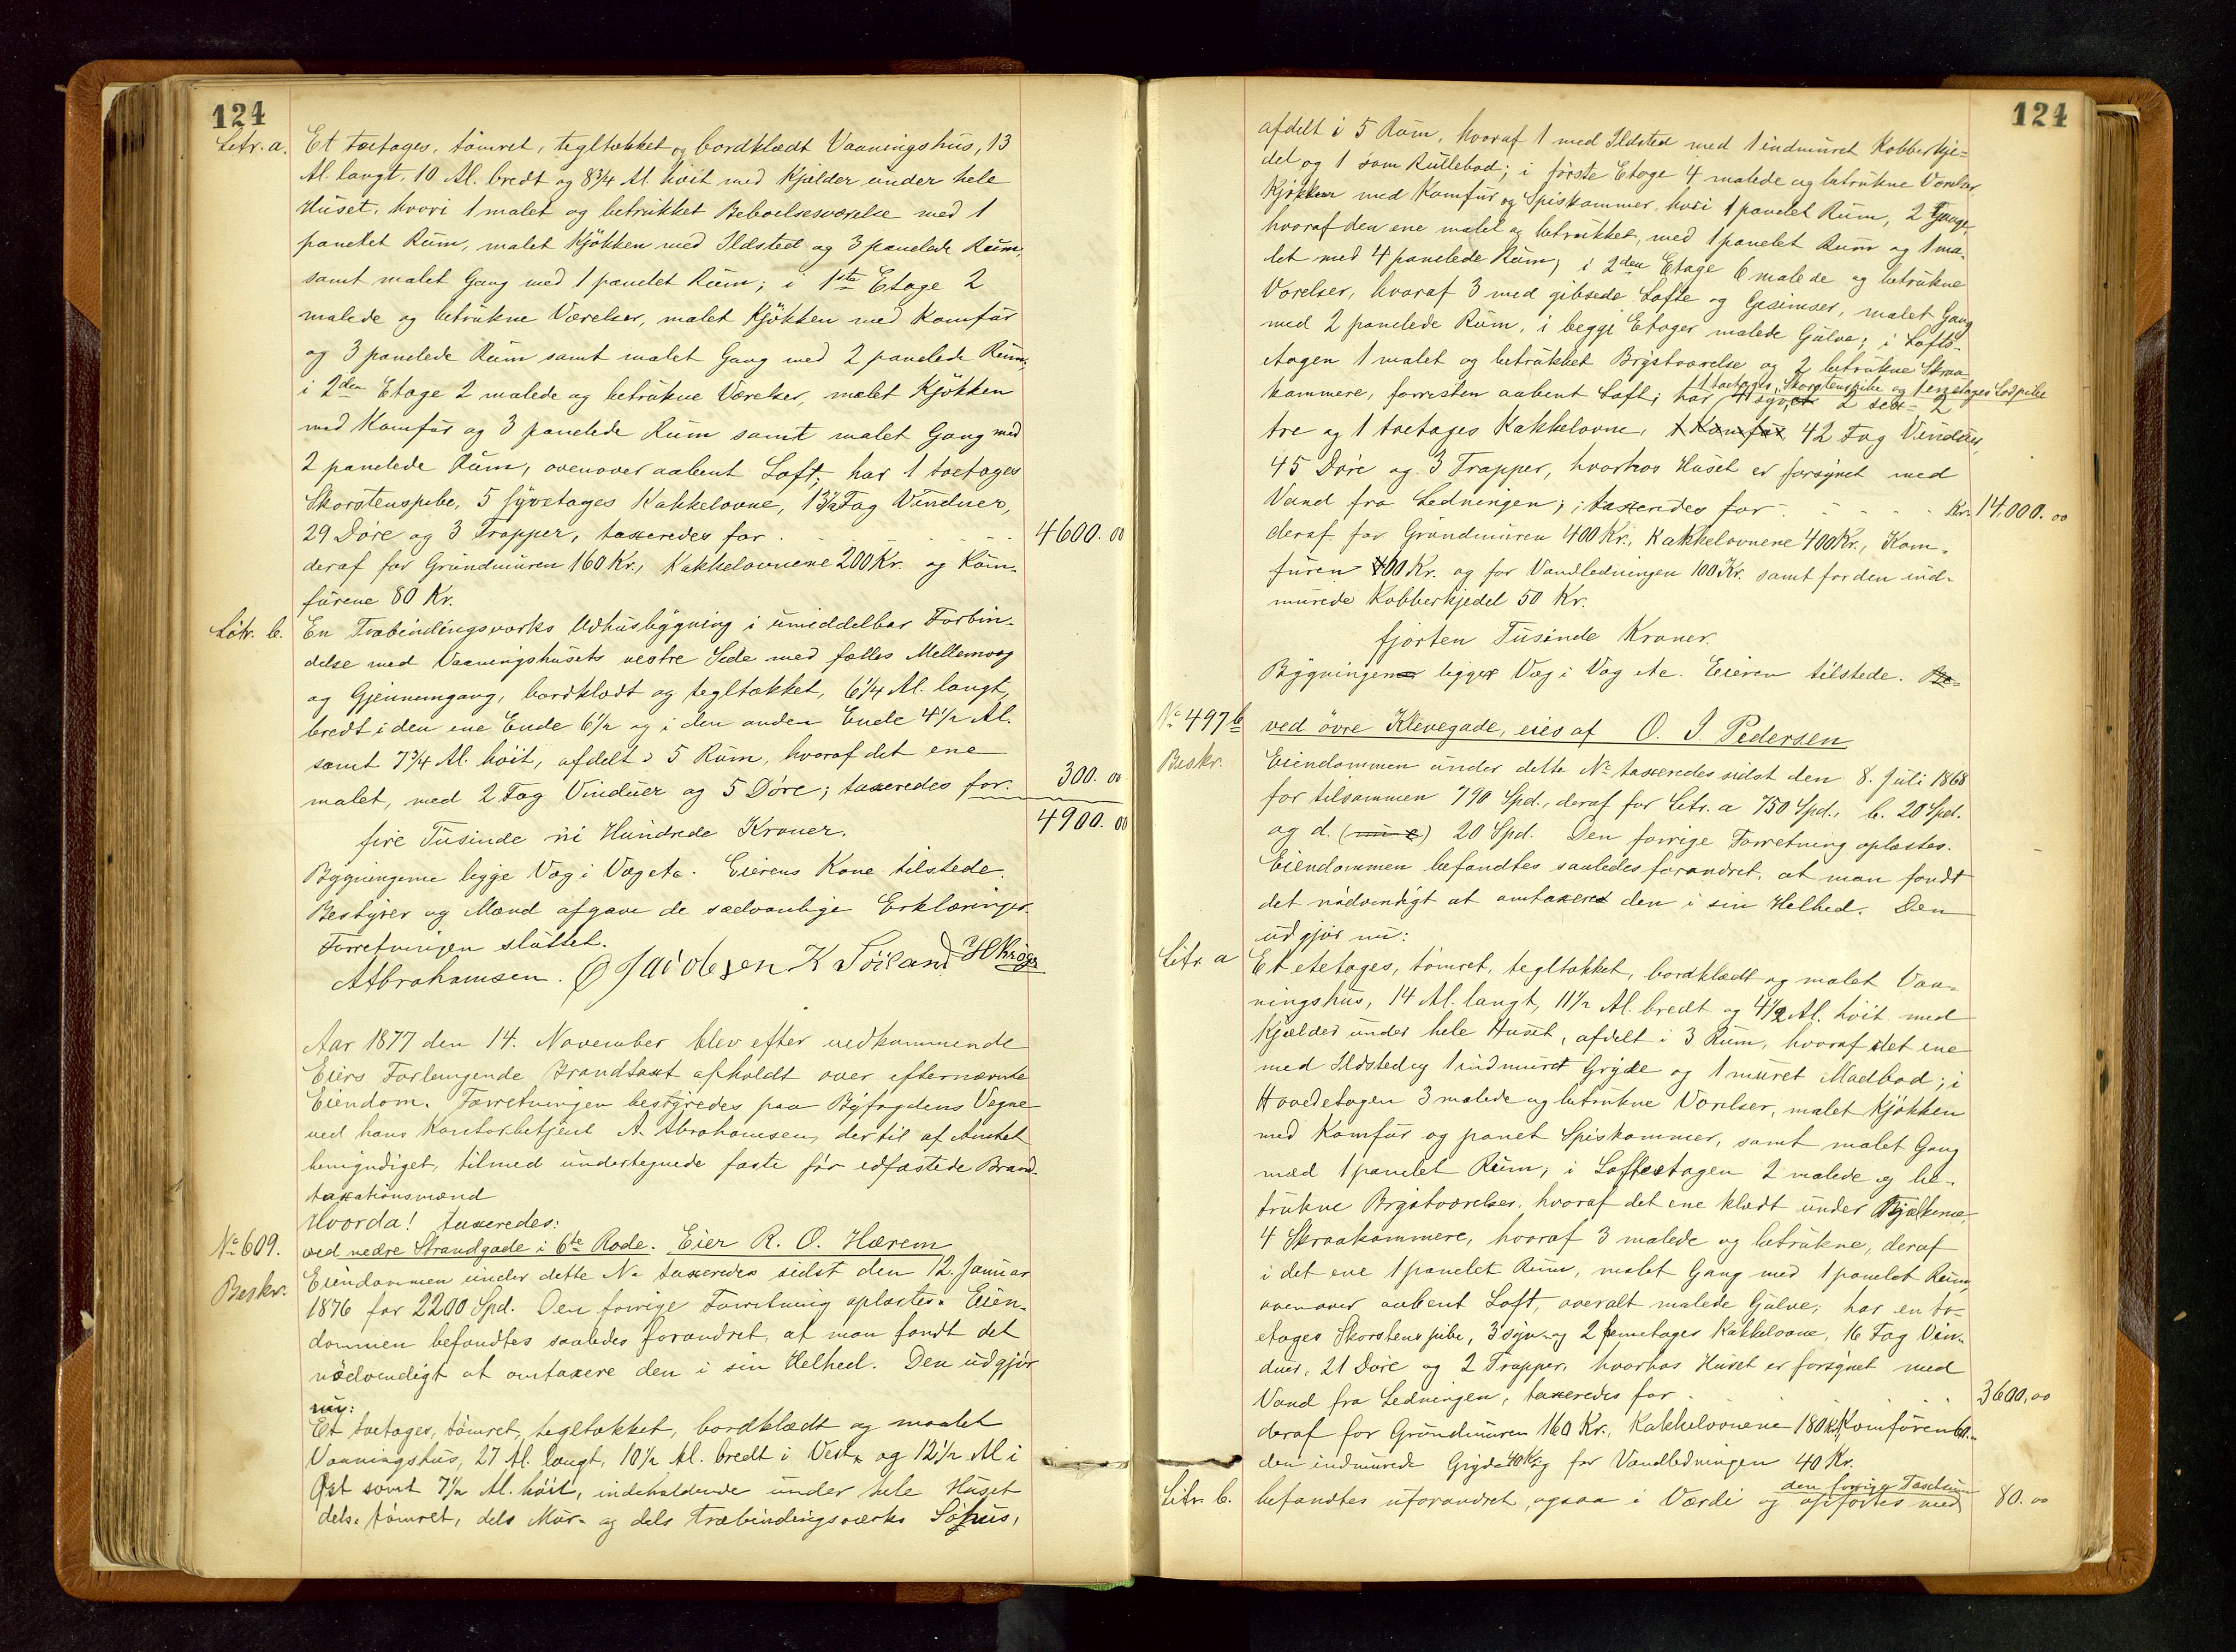 124
Litr. a. Et toetages, tömret, tegltækket og bordklædt Vaaningshus, 13
Al. langt, 10 Al. bredt og 8 3/4 Al. höit med Kjælder under hele
Huset, hvori 1 malet og betrukket Beboelsesværelse med 1
panelet Rum, malet Kjökken med Ildsted og 3 panelede Rum,
samt malet Gang med 1 panelet Rum; i 1ste Etage 2
malede og betrukne Værelser, malet Kjökken med Komfur
og 3 panelede Rum samt malet Gang med 2 panelede Rum;
i 2den Etage 2 malede og betrukne Værelser, malet Kjökken
med Komfur og 3 panelede Rum samt malet Gang med
2 panelede Rum, ovenover aabent Loft; har 1 toetages
Skorstenspibe, 5 syvetages Kakkelovne, 13 1/2 Fag Vinduer,
29 Döre og 3 Trapper, taxeredes for 4600.00
deraf for Grundmuren 160 Kr., Kakkelovnene 200 Kr. og Kom-
furene 80 Kr.
Litr. b. En Træbindingsværks Udhusbygning i umiddelbar Forbin-
delse med Vaaningshusets vestre Side med fælles Mellemvæg
og Gjennemgang, bordklædt og tegltækket, 6 1/4 Al. langt,
bredt i den ene Ende 6 1/2 og i den anden Ende 4 1/2 Al.
samt 7 3/4 Al. höit, afdelt i 5 Rum, hvoraf det ene
malet, med 2 Fag Vinduer og 5 Döre; taxeredes for 300.00
4900.00
fire Tusinde ni Hundrede Kroner.
Bygningerne ligge Væg i Væg etc. Eierens Kone tilstede.
Bestyrer og Mænd afgave de sædvanlige Erklæringer.
Forretningen sluttet.
AAbrahamsen. O Jacobsen K Söiland
Aar 1877 den 14. November blev efter vedkommende
Eiers Forlangende Brandtaxt afholdt over efternævnte
Eiendom. Forretningen bestyredes paa Byfogdens Vegne
ved hans Kontorbetjent A. Abrahamsen, dertil af Amtet
bemyndiget, tilmed undertegnede faste för edfæstede Brand-
taxationsmænd
Hvorda! taxeredes:
No 609. ved nedre Strandgade i 6te Rode. Eier R. O. Hærem
Beskr. Eiendommen under dette No taxeredes sidst den 12. Januar
1876 for 2200 Spd. Den forrige Forretning oplæstes. Eien-
dommen befandtes saaledes forandret, at man fandt det
nödvendigt at omtaxere den i sin Helhed. Den udgjör
nu:
Et toetages, tömret, tegltækket, bordklædt og maalet
Vaaningshus, 27 Al. langt, 10 1/2 Al. bredt i Vest og 12 1/2 Al i
Öst samt 7 1/2 Al. höit, indeholdende under hele Huset
dels tömret, dels Mur- og dels Træbindingsværks Söhus,
124
afdelt i 5 Rum, hvoraf 1 med Ildsted med 1 indmuret Kobberkje-
del og 1 som Rullebod; i förste Etage 4 malede og betrukne Værelser
Kjökken med Komfur og Spiskammer, hvori 1 panelet Rum, 2 Gange,
hvoraf den ene malet og betrukket, med 1 panelet Rum og 1 ma-
let med 4 panelede Rum; i 2den Etage 6 malede og betrukne
Værelser, hvoraf 3 med gibsede Lofte og Gesimser, malet Gang
med 2 panelede Rum, i begge Etager malede Gulve; i Lofts-
etagen 1 malet og betrukket Brystværelse og 2 betrukne Skraa-
1 toetages Skorstenspibe og 1 enetages Lodpibe
kammere, forresten aabent Loft; har 4 syv, 2 sex- 2
tre og 1 toetages Kakkelovne, 1 Komfur 42 Fag Vinduer,
45 Döre og 3 Trapper, hvorhos Huset er forsynet med
Vand fra Ledningen; taxeredes for Kr. 14,000.00
deraf for Grundmuren 400 Kr., Kakkelovnene 400 Kr., Kom-
furen 100 Kr. og for Vandledningen 100 Kr. samt for den ind-
murede Kobberkjedel 50 Kr.
fjorten Tusinde Kroner
Bygningen ligger Væg i Væg etc. Eieren tilstede. Be-
No 497 b ved övre Klevegade, eies af O. J. Pedersen
Beskr. Eiendommen under dette No taxeredes sidst den 8. Juli 1868
for tilsammen 790 Spd., deraf for Litr. a 750 Spd., b. 20 Spd.
og d. (nu c) 20 Spd. Den forrige Forretning oplæstes.
Eiendommen befandtes saaledes forandret, at man fandt
det nödvendigt at omtaxere den i sin Helhed. Den
udgjör nu:
Litr. a Et etetages, tömret, tegltækket, bordklædt og malet Vaa-
ningshus, 14 Al. langt, 11 1/2 Al. bredt og 4 1/2 Al. höit med
Kjælder under hele Huset, afdelt i 3 Rum, hvoraf det ene
med Ildsted og 1 indmuret Gryde og 1 muret Madbod; i
Hovedetagen 3 malede og betrukne Værelser, malet Kjökken
med Komfur og panet Spiskammer, samt malet Gang
med 1 panelet Rum; i Loftsetagen 2 malede og be-
trukne Brystværelser, hvoraf det ene klædt under Bjælkerne,
4 Skraakammere, hvoraf 3 malede og betrukne, deraf
i det ene 1 panelet Rum, malet Gang med 1 panelet Rum,
ovenover aabent Loft, overalt malede Gulve; har en to-
etages Skorstenspibe, 3 syv- og 2 femetages Kakkelovne, 16 Fag Vin-
duer, 21 Döre og 2 Trapper, hvorhos Huset er forsynet med
Vand fra Ledningen, taxeredes for 3600.00
deraf for Grundmuren 160 Kr., Kakkelovnene 180 Kr, Komfuren 60..
den indmurede Gryde 40 Kr og for Vandledningen 40 Kr.
den forrige
Litr. b. befandtes uforandret, ogsaa i Værdi og opförtes med 80.00